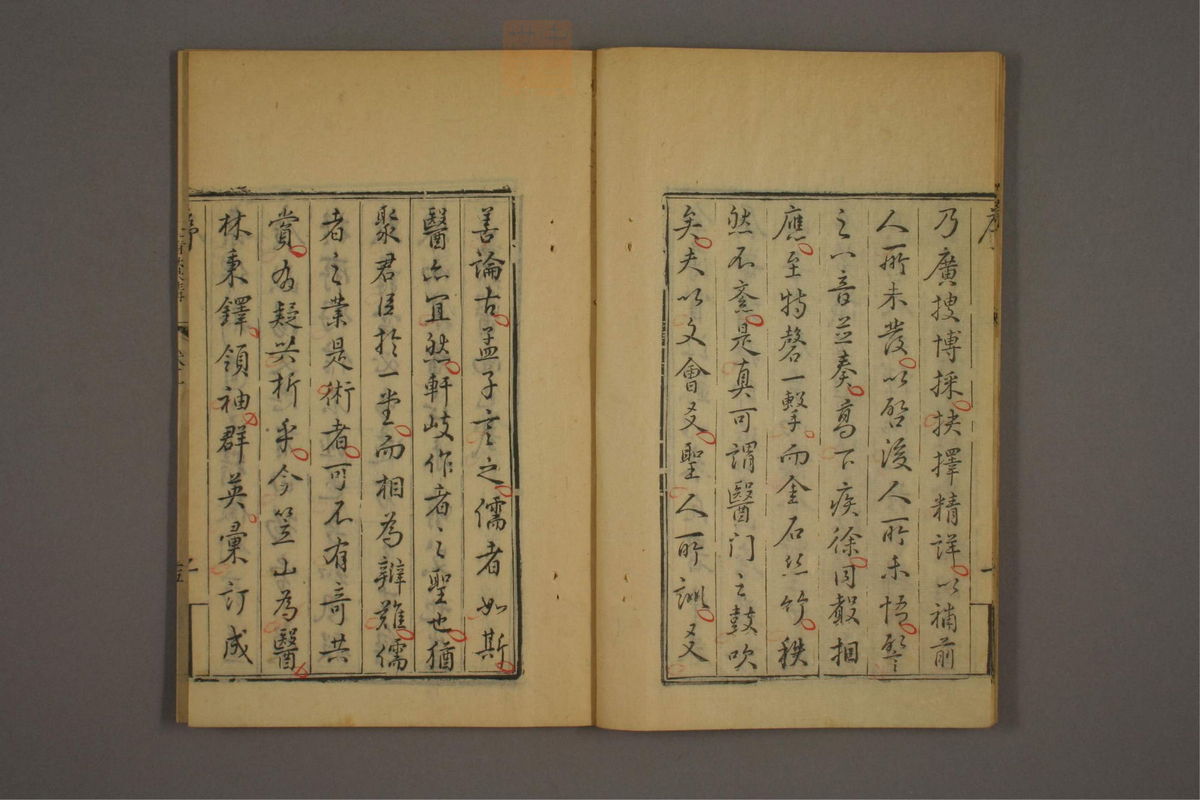 乃廣搜博採抉擇精詳以補前
人所未發以啓後人所未悟譬
之八音並奏高下疾徐同聲相
應至特磬一擊而金石丝竹秩
然不紊是真可謂醫门之鼓吹
矣夫以文會友聖人所訓友
善論古孟子言之儒者如斯
醫亦宜然軒岐作者之聖也猶
聚君臣於一堂而相為辨難儒
者之業是術者可不有奇共
賞有疑共析乎今笠山為醫
林秉鐸領袖群英彙訂成
序